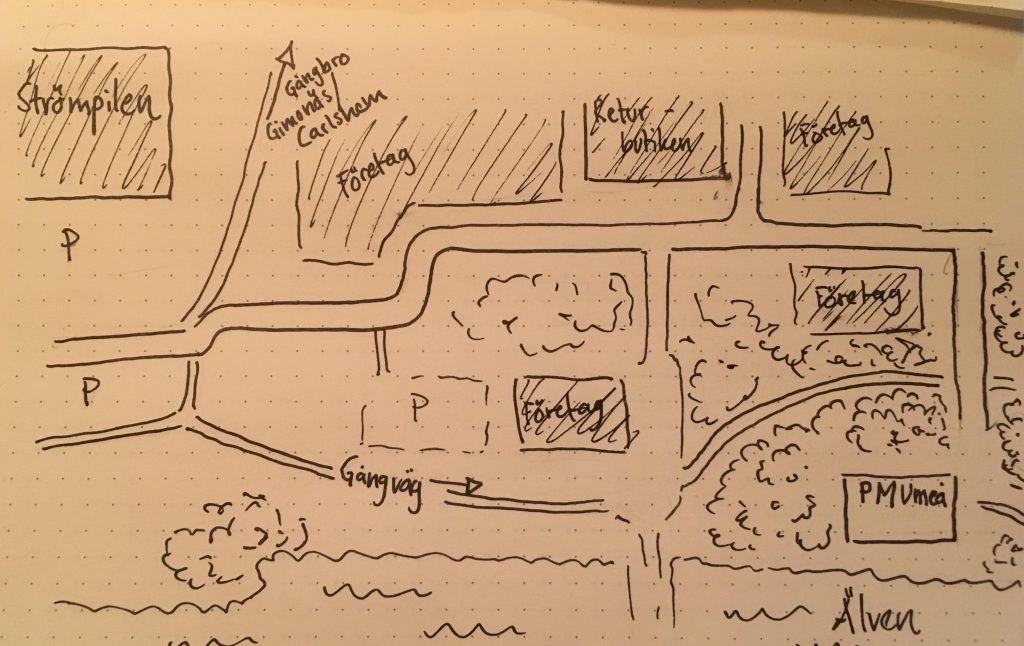 Strömpilen
Gångbro
Gimonäs
Carlshem
Företag
Retur-
butiken
Företag
P
Företag
P
P
Företag
Gångväg
PMUmeå
Älven